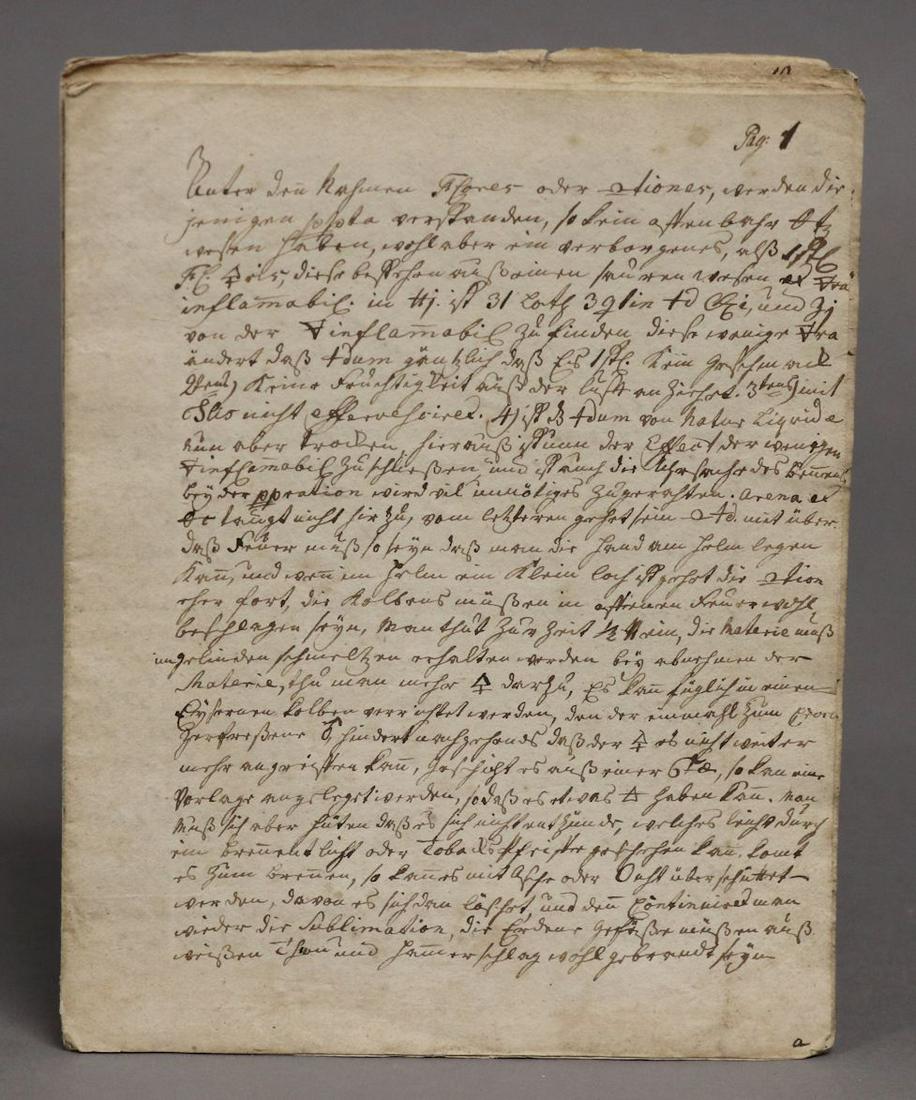 Pag: 1
Unter den Nahmen Flores oder ationes, werden die
jenigen ppta verstanden, so kein offenbahr
wesen haben, wohl aber ein verborgenes, alß
Fl: 🜍ris, diese bestehen auß einen sauren wesen et
inflam̄abil: in ist 31 Loth 3 und
von der 🜃 inflam̄abil zu finden diese wenige 🜃ra
ändert daß dum gäntzlich daß es Kein geschmack
Keine Feuchtigkeit auß der lufft an ziehet. 3tens mit
nicht effervesciret. 4) ist dum von Natur Liquide
nun aber trocken, hierauß ist nun der Effect der wenigen
🜃 inflam̄abil zu schließen, und ist auch die Uhrsache des
bey der ppration wird vil unnötiges zugerathen. arena et
taugt nicht hir zu, vom letzteren gehet sein mit über
daß Feuer muß so seyn daß man die Hand am Helm legen
Kan̄, und wen̄ im Helm ein Klein loch ist gehet die ation
eher fort, die Kolbens müßen in offenen Feuer wohl
beschlagen seyn, Man thut zur Zeit ½ ℔ ein, die Materie muß
im gelinden schmeltzen erhalten werden bey abnehmen der
Materie, thu man mehr 🜍 darzu, Es kan̄ füglich in einen
Eysernen Kolben verrichtet werden, den der einmahl zum
Zerfreßene hindert nachgehends daß der 🜍 es nicht weiter
mehr angreiffen kan̄, geschicht es auß einer so kan eine
Vorlage angelegt werden, so daß es etwas 🜁 haben kan̄. Man
Muß sich aber hüten daß es sich nicht entzünde, welches leicht durch
ein brennent licht oder Tobacks Pfeiffe geschehen kan̄, komt
es zum brennen, so kan̄ es mit Asche oder überschüttet
werden, davon es sich dan löschet, und den̄ Continuiret man
wieder die Sublimation, die Erdene Gefäße müßen auß
weißen Thon und Ham̄erschlag wohl gebrandt seyn
a